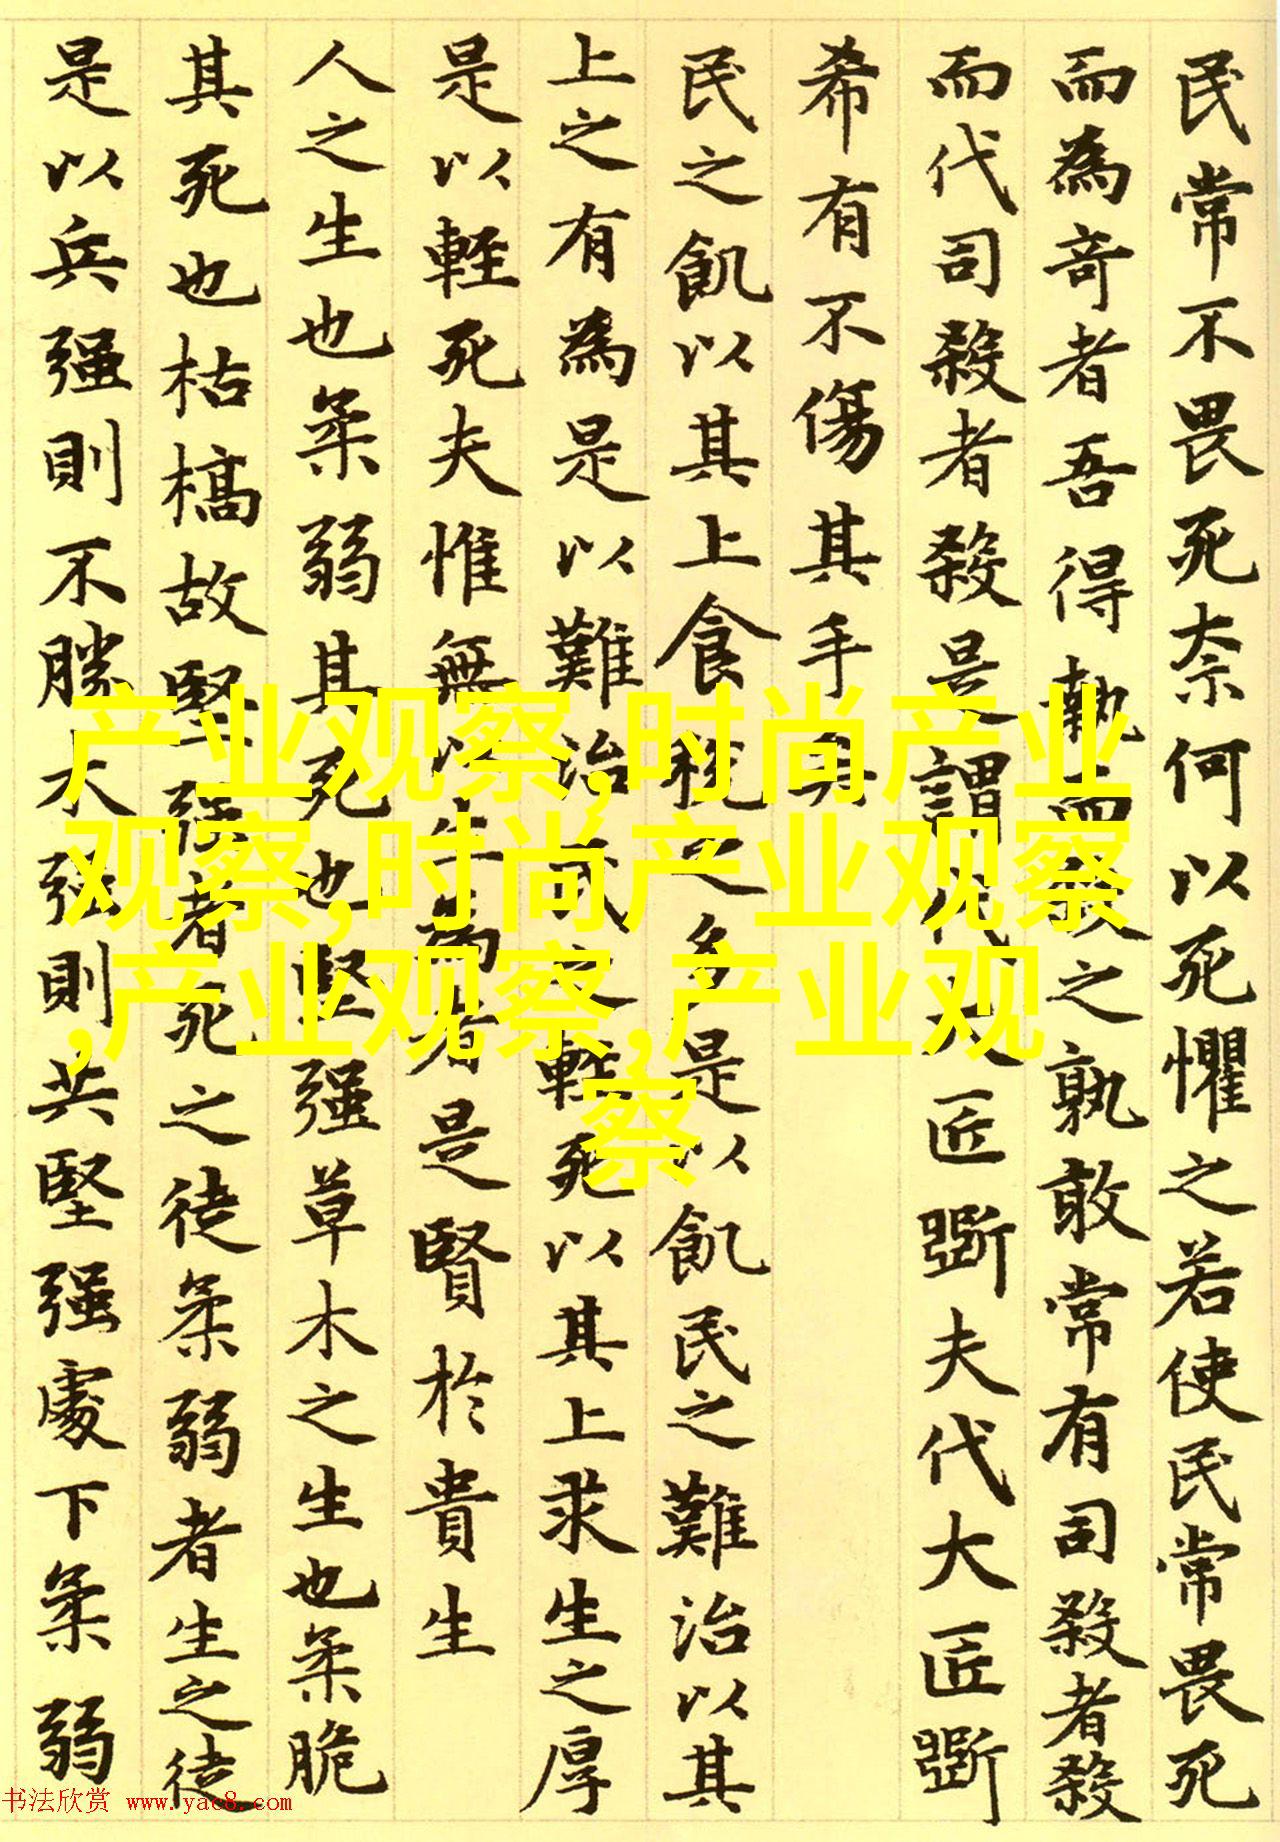 民常不畏死奈何以死懼之若使民常畏死
而為奇者吾得執而殺之孰敢常有司殺者殺
而代司殺者殺是謂代大匠斲夫代大匠斲
希有不傷其手矣
民之飢以其上食稅之多是以飢民之難治以其
上之有為是以難治民之輕死以其上求生之厚
是以輕死夫惟無以生為者是賢於貴生
人之生也柔弱其死也堅强草木之生也柔脆
其死也枯槁故堅强者死之徒柔弱者生之徒
是以兵强則不勝木强則共堅强處下柔弱
产业观察,时尚产业
观察,时尚产业观察
,产业观察,产业观
察
书法欣赏 www.yac8.com